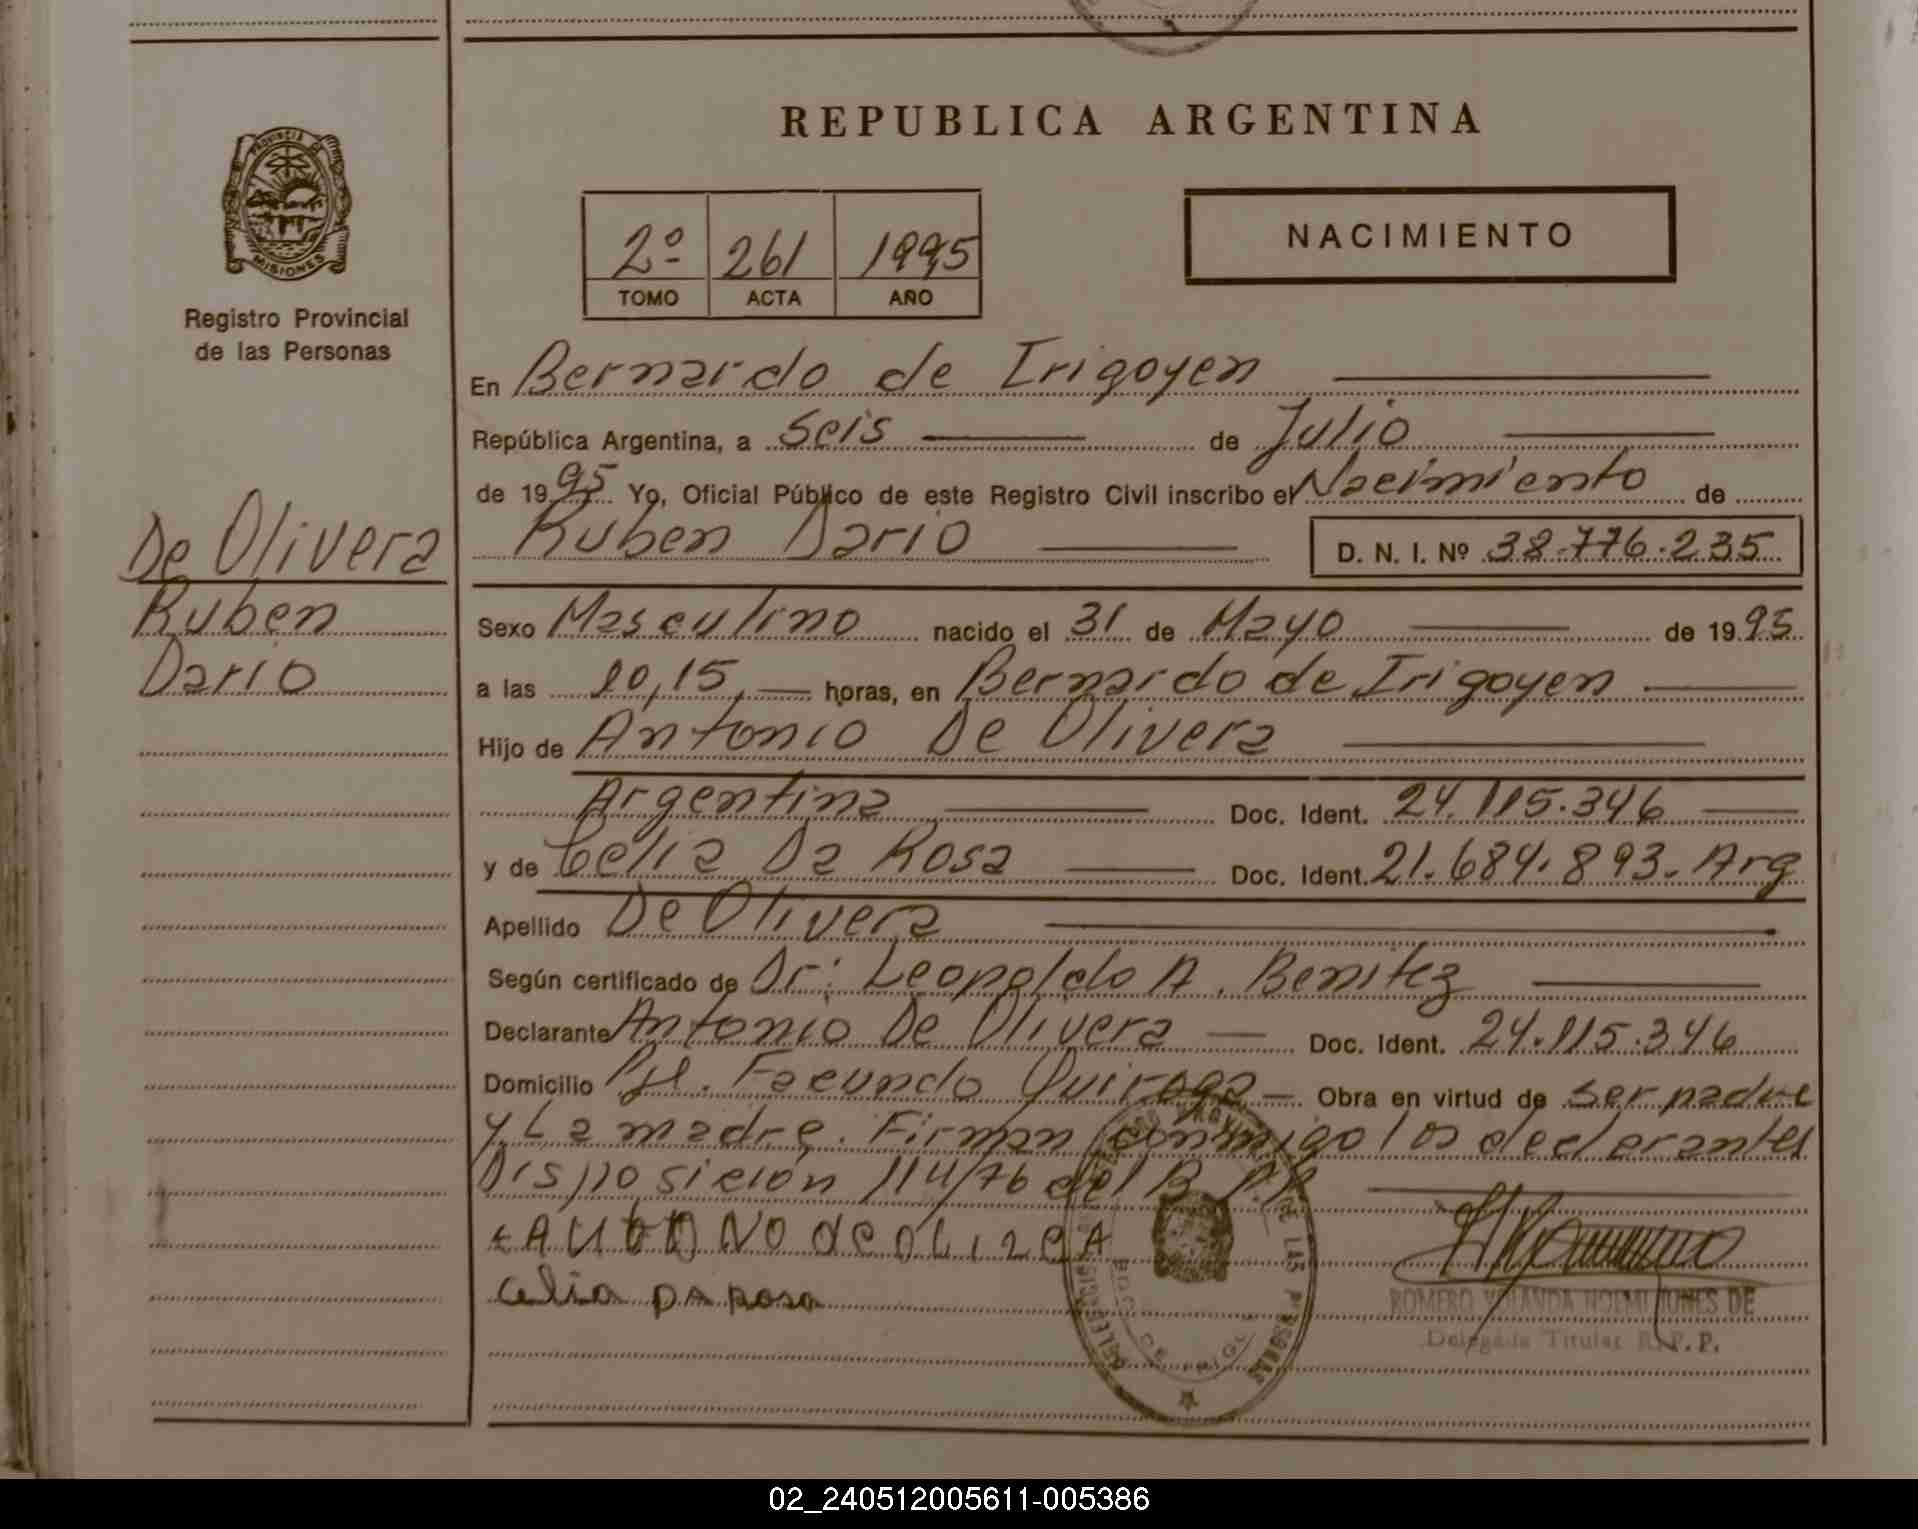 REPUBLICA ARGENTINA
PROVINCIA DE
MISIONES
Registro Provincial
de las Personas
2º 261 1995
TOMO ACTA AÑO
NACIMIENTO
En Bernardo de Irigoyen
República Argentina, a Seis de Julio
de 1995 Yo, Oficial Público de este Registro Civil inscribo el Nacimiento de
Ruben Dario D. N. I. Nº 38.776.235
De Olivera
Ruben
Dario
Sexo Masculino nacido el 31 de Mayo de 1995
a las 10,15 horas, en Bernardo de Irigoyen
Hijo de Antonio De Olivera
Argentina Doc. Ident. 24.115.346
y de Celia Da Rosa Doc. Ident. 21.684.893. Arg
Apellido De Olivera
Según certificado de Dr: Leopoldo A. Benitez
Declarante Antonio De Olivera Doc. Ident. 24.115.346
Domicilio Pje. Facundo Quiroga Obra en virtud de ser padre
y La madre. Firman conmigo los declarantes
Disposición 114/76 del R.P.P.
celia DA Rosa
ROMERO YOLANDA NOEMI JUNES DE
Delegada Titular R.P.P.
02_240512005611-005386